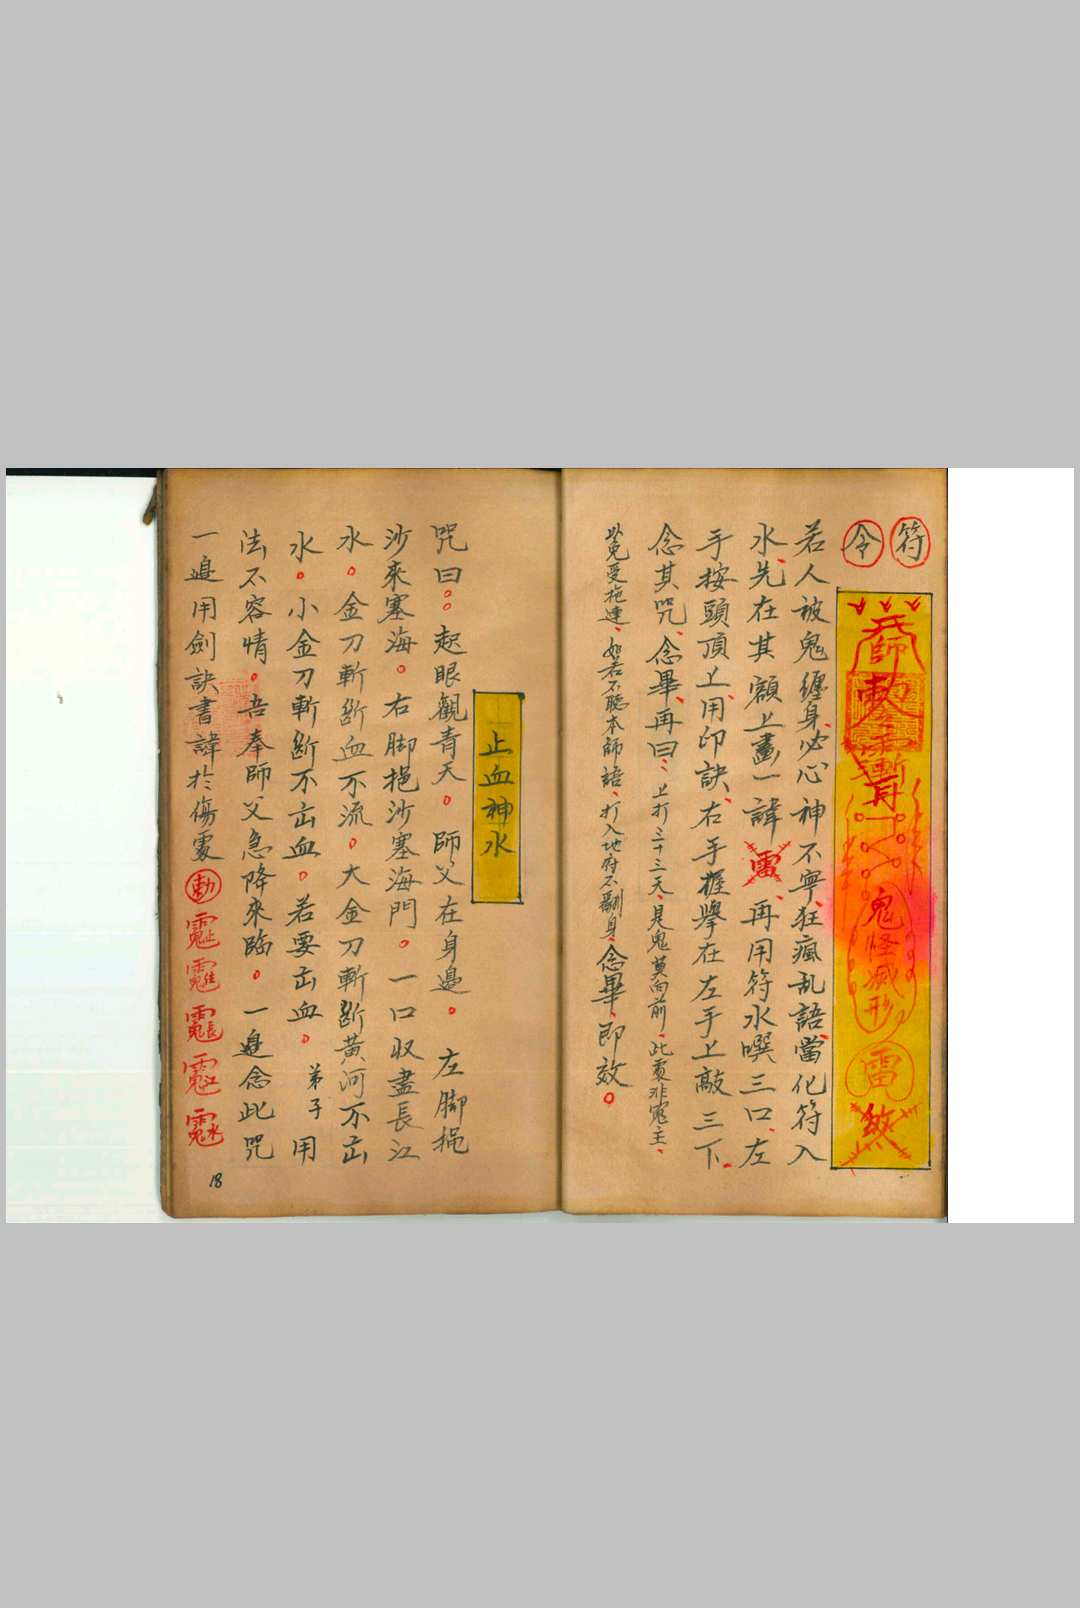 符令
師勅
鬼怪滅形
雷
煞
若人被鬼纏身、必心神不寧、狂瘋乱語、當化符入
水、先在其額上畫一諱雷、再用符水噀三口、左
手按頭頂上、用印訣、右手握擧在左手上敲三下、
念其咒、念畢、再曰、上打三十三天、見鬼莫向前、此處非寃主、
以免受拖連、如若不聽本師語、打入地府不翻身、念畢、即效。
止血神水
咒曰。。起眼觀青天。師父在身邊。左脚挹
沙來塞海。右脚挹沙塞海門。一口收盡長江
水。金刀斬斷血不流。大金刀斬斷黃河不出
水。小金刀斬斷不出血。若要出血。弟子用
法不容情。吾奉師父急降來臨。一邊念此咒
一邊用劍訣書諱於傷處勅
18